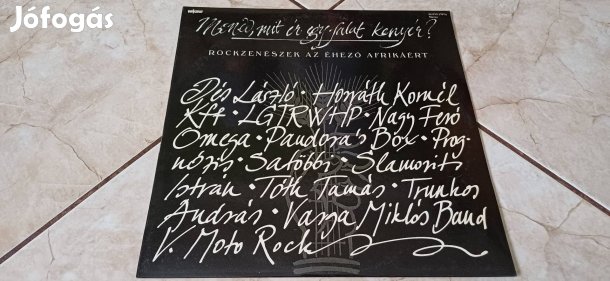 Jófogás
Mondd, mit ér egy falat kenyér?
ROCKZENÉSZEK AZ ÉHEZŐ AFRIKÁÉRT
Dés László · Horváth Kornél
Kft · LGT RWHP · Nagy Feró
Omega · Pandora's Box · Prog-
nózis · Satöbbi · Slamovits
István · Tóth Tamás · Trunkos
András · Varga Miklós Band
V. Moto Rock